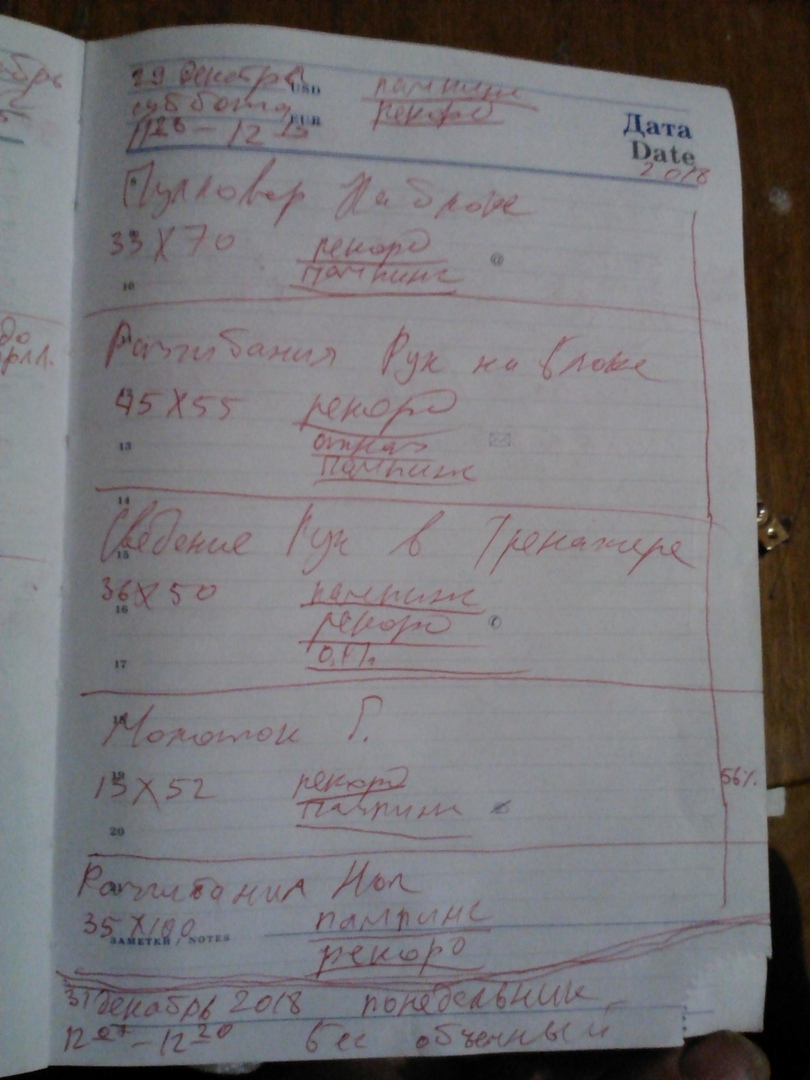 29 декабрь USD пампинг
суббота EUR рекорд
Дата
Date
2018
Пулловер На блоке
33 X 70 рекорд
пампинг
10
11
Разгибания Рук на блоке
45 X 55 рекорд
13 отказ
пампинг
14
Сведение Рук в Тренажере
15
36 X 50 пампинг
16
рекорд
17
Молоток Г.
15 X 52 рекорд
56%
пампинг
20
Разгибания Ног
35 X 100 пампинг
ЗАМЕТКИ / NOTES
рекорд
31 декабрь 2018 понедельник